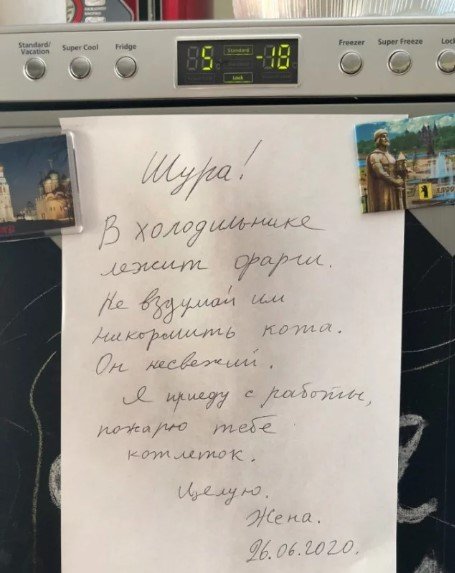 Standard/
Vacation
Super Cool
Fridge
5
Standard
Lock
-18
Freezer
Super Freeze
Шура!
В холодильнике
лежит фарш.
Не вздумай им
накормить кота.
Он несвежий.
Я приеду с работы,
пожарю тебе
котлеток.
Целую.
Жена.
26.06.2020.